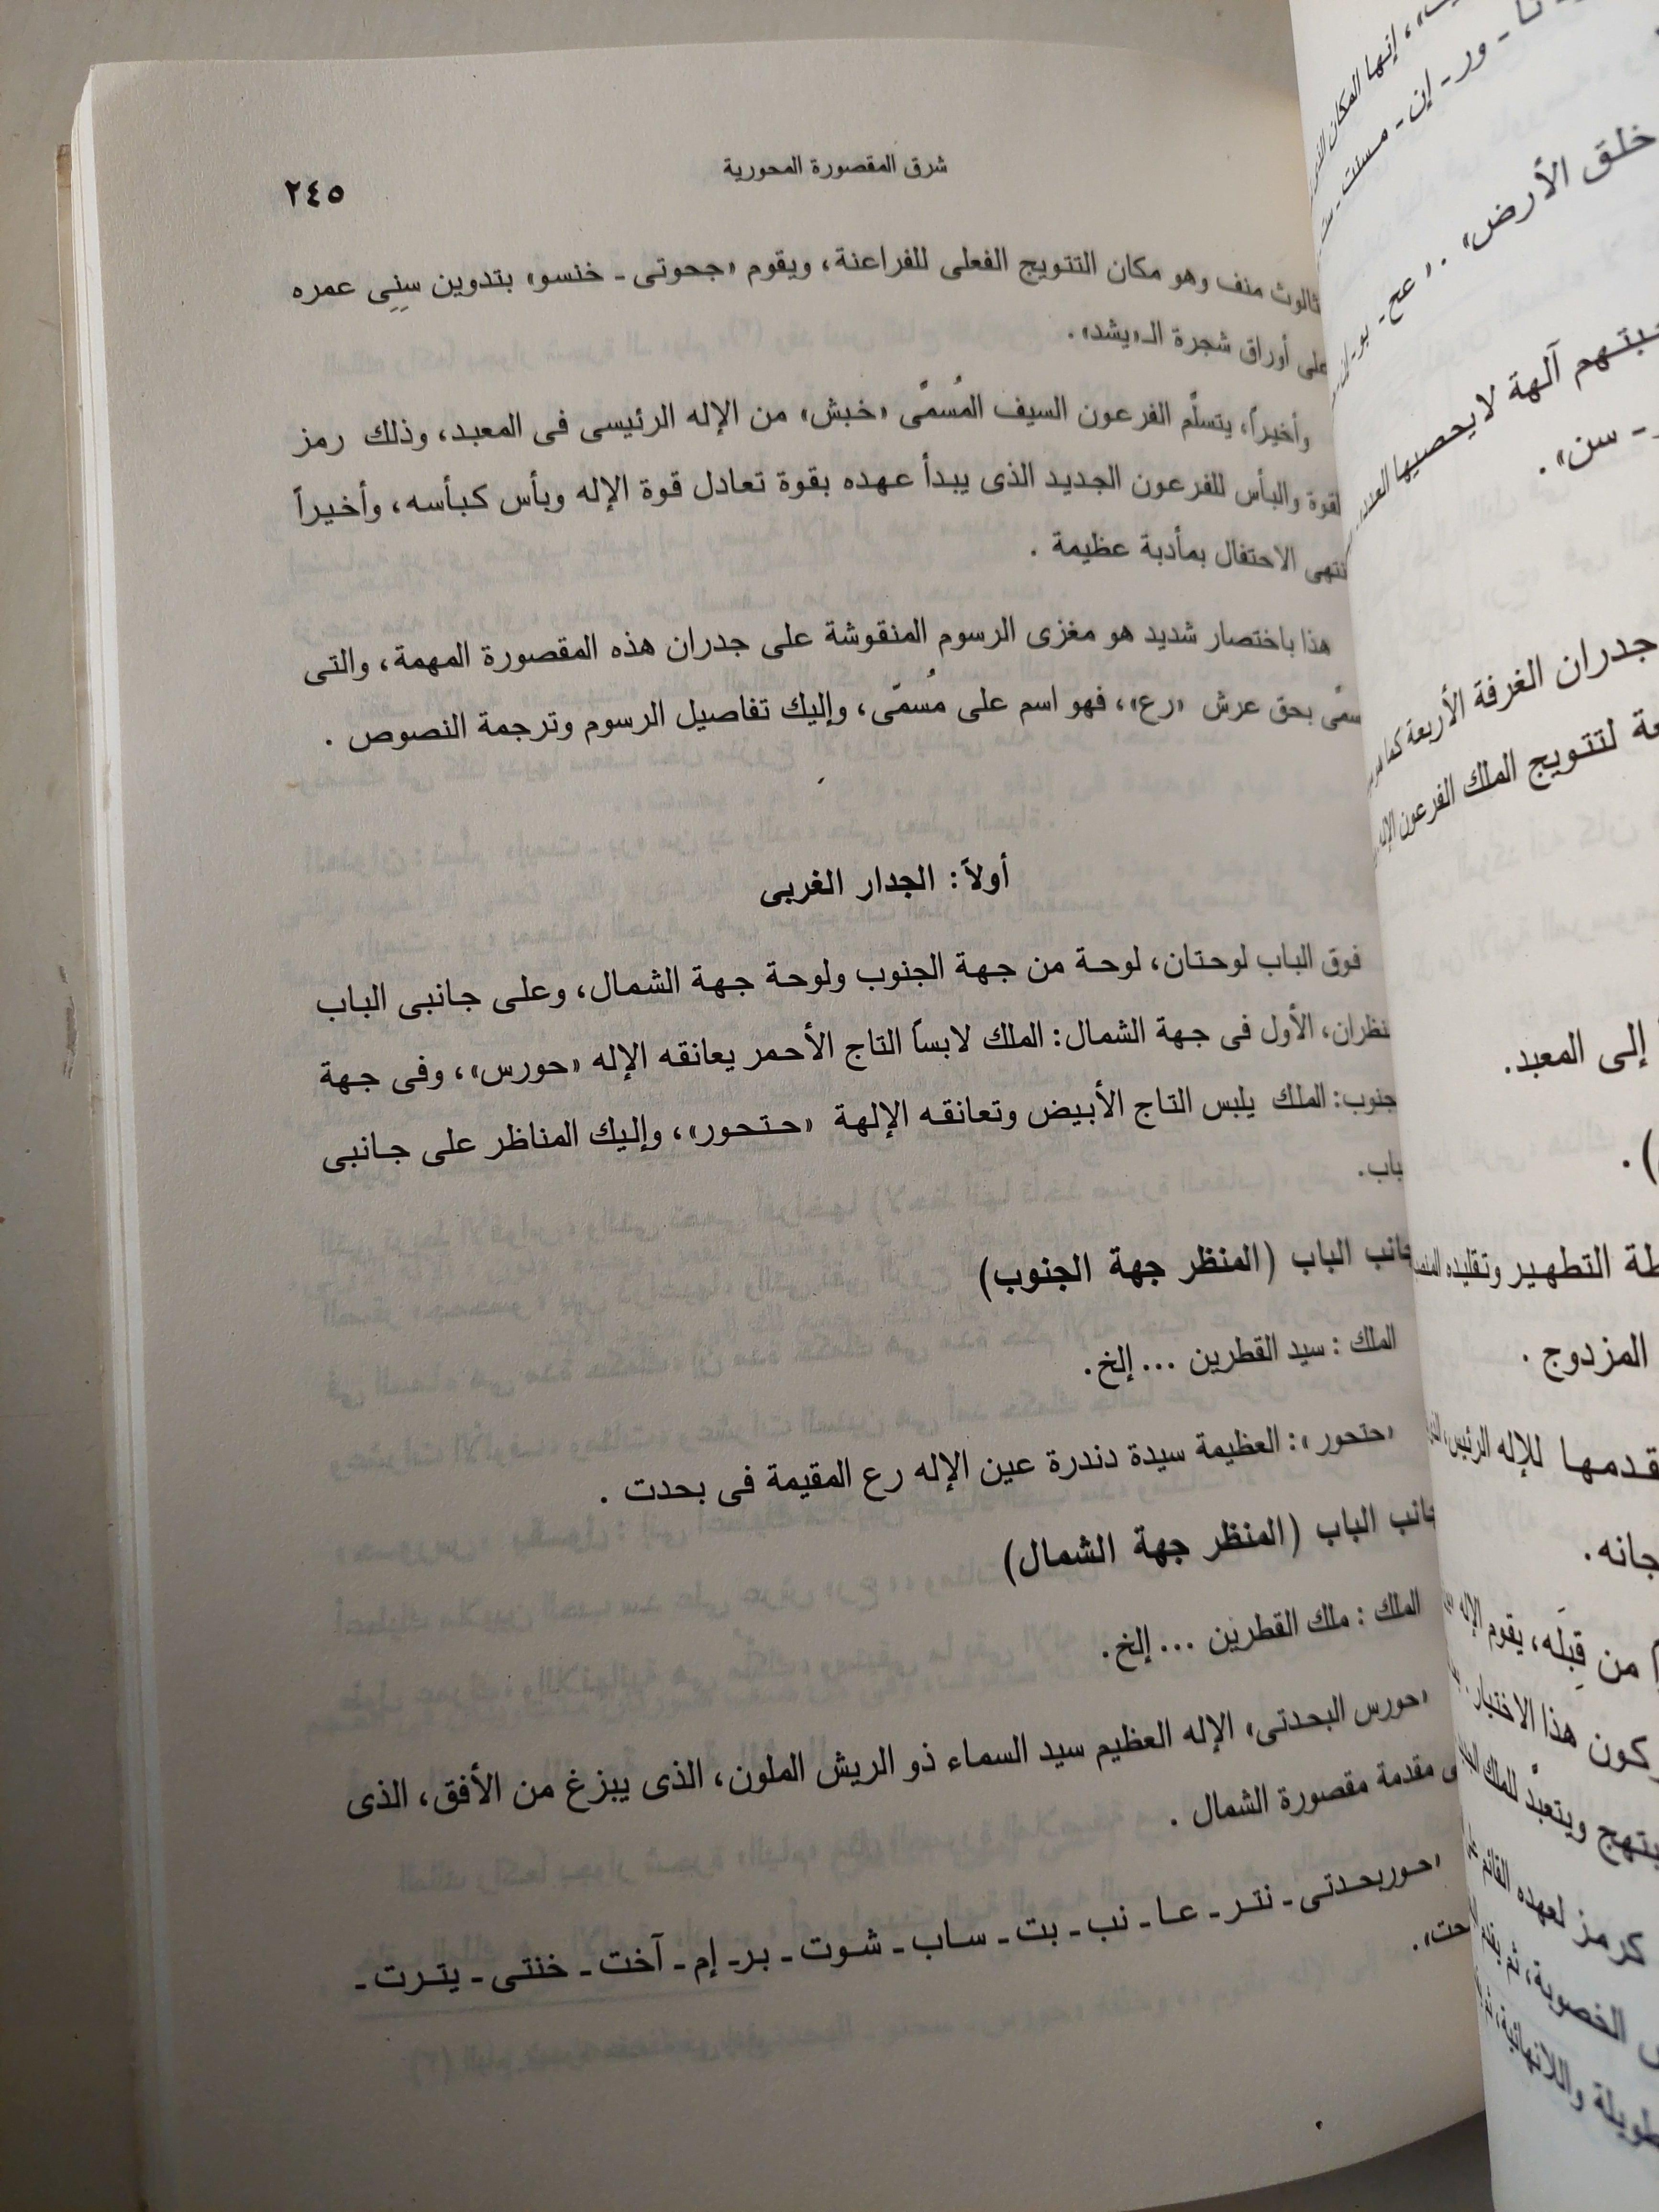 شرق المقصورة المحورية
٢٤٥
ثالوث منف وهو مكان التتويج الفعلى للفراعنة، ويقوم «جحوتى ـ خنسو» بتدوين سِنِى عمره
على أوراق شجرة الـ«يشد» .
وأخيراً، يتسلَّم الفرعون السيف المُسمَّى «خبش» من الإله الرئيسى فى المعبد، وذلك رمز
لقوة والبأس للفرعون الجديد الذى يبدأ عهده بقوة تعادل قوة الإله وبأس كبأسه، وأخيراً
نتهى الاحتفال بمأدبة عظيمة .
هذا باختصار شديد هو مغزى الرسوم المنقوشة على جدران هذه المقصورة المهمة، والتى
سمَّى بحق عرش «رع»، فهو اسم على مُسمّى، وإليك تفاصيل الرسوم وترجمة النصوص .
أولاً: الجدار الغربى
فوق الباب لوحتان، لوحة من جهة الجنوب ولوحة جهة الشمال، وعلى جانبى الباب
نظران، الأول فى جهة الشمال: الملك لابساً التاج الأحمر يعانقه الإله «حورس»، وفى جهة
جنوب: الملك يلبس التاج الأبيض وتعانقه الإلهة «حتحور»، وإليك المناظر على جانبى
باب.
جانب الباب (المنظر جهة الجنوب)
الملك : سيد القطرين ... إلخ.
«حتحور»: العظيمة سيدة دندرة عين الإله رع المقيمة فى بحدت .
جانب الباب (المنظر جهة الشمال)
الملك : ملك القطرين ... إلخ.
«حورس البحدتى» الإله العظيم سيد السماء ذو الريش الملون، الذى يبزغ من الأفق، الذى
مقدمة مقصورة الشمال .
«حوربحدتى ـ نتر ـ عا ـ نب ـ بت ـ ساب ـ شوت ـ بر ـ إم ـ آخت ـ خنتى ـ يترت ـ
حت».
إنها المكان
ور ـ إن ـ مسنت ـ
خلق الأرض» .
آلهة لا يحصيها العدد
ـ سن» .
جدران الغرفة الأربعة كما
لتتويج الملك الفرعون
إلى المعبد.
التطهير وتقليده
المزدوج .
للإله الرئيسى
من قِبَله، يقوم الإله
هذا الاختيار
ويتعبَّد للملك
كرمز لعهده القائم
الخصوبة، ثم
واللانهائية،